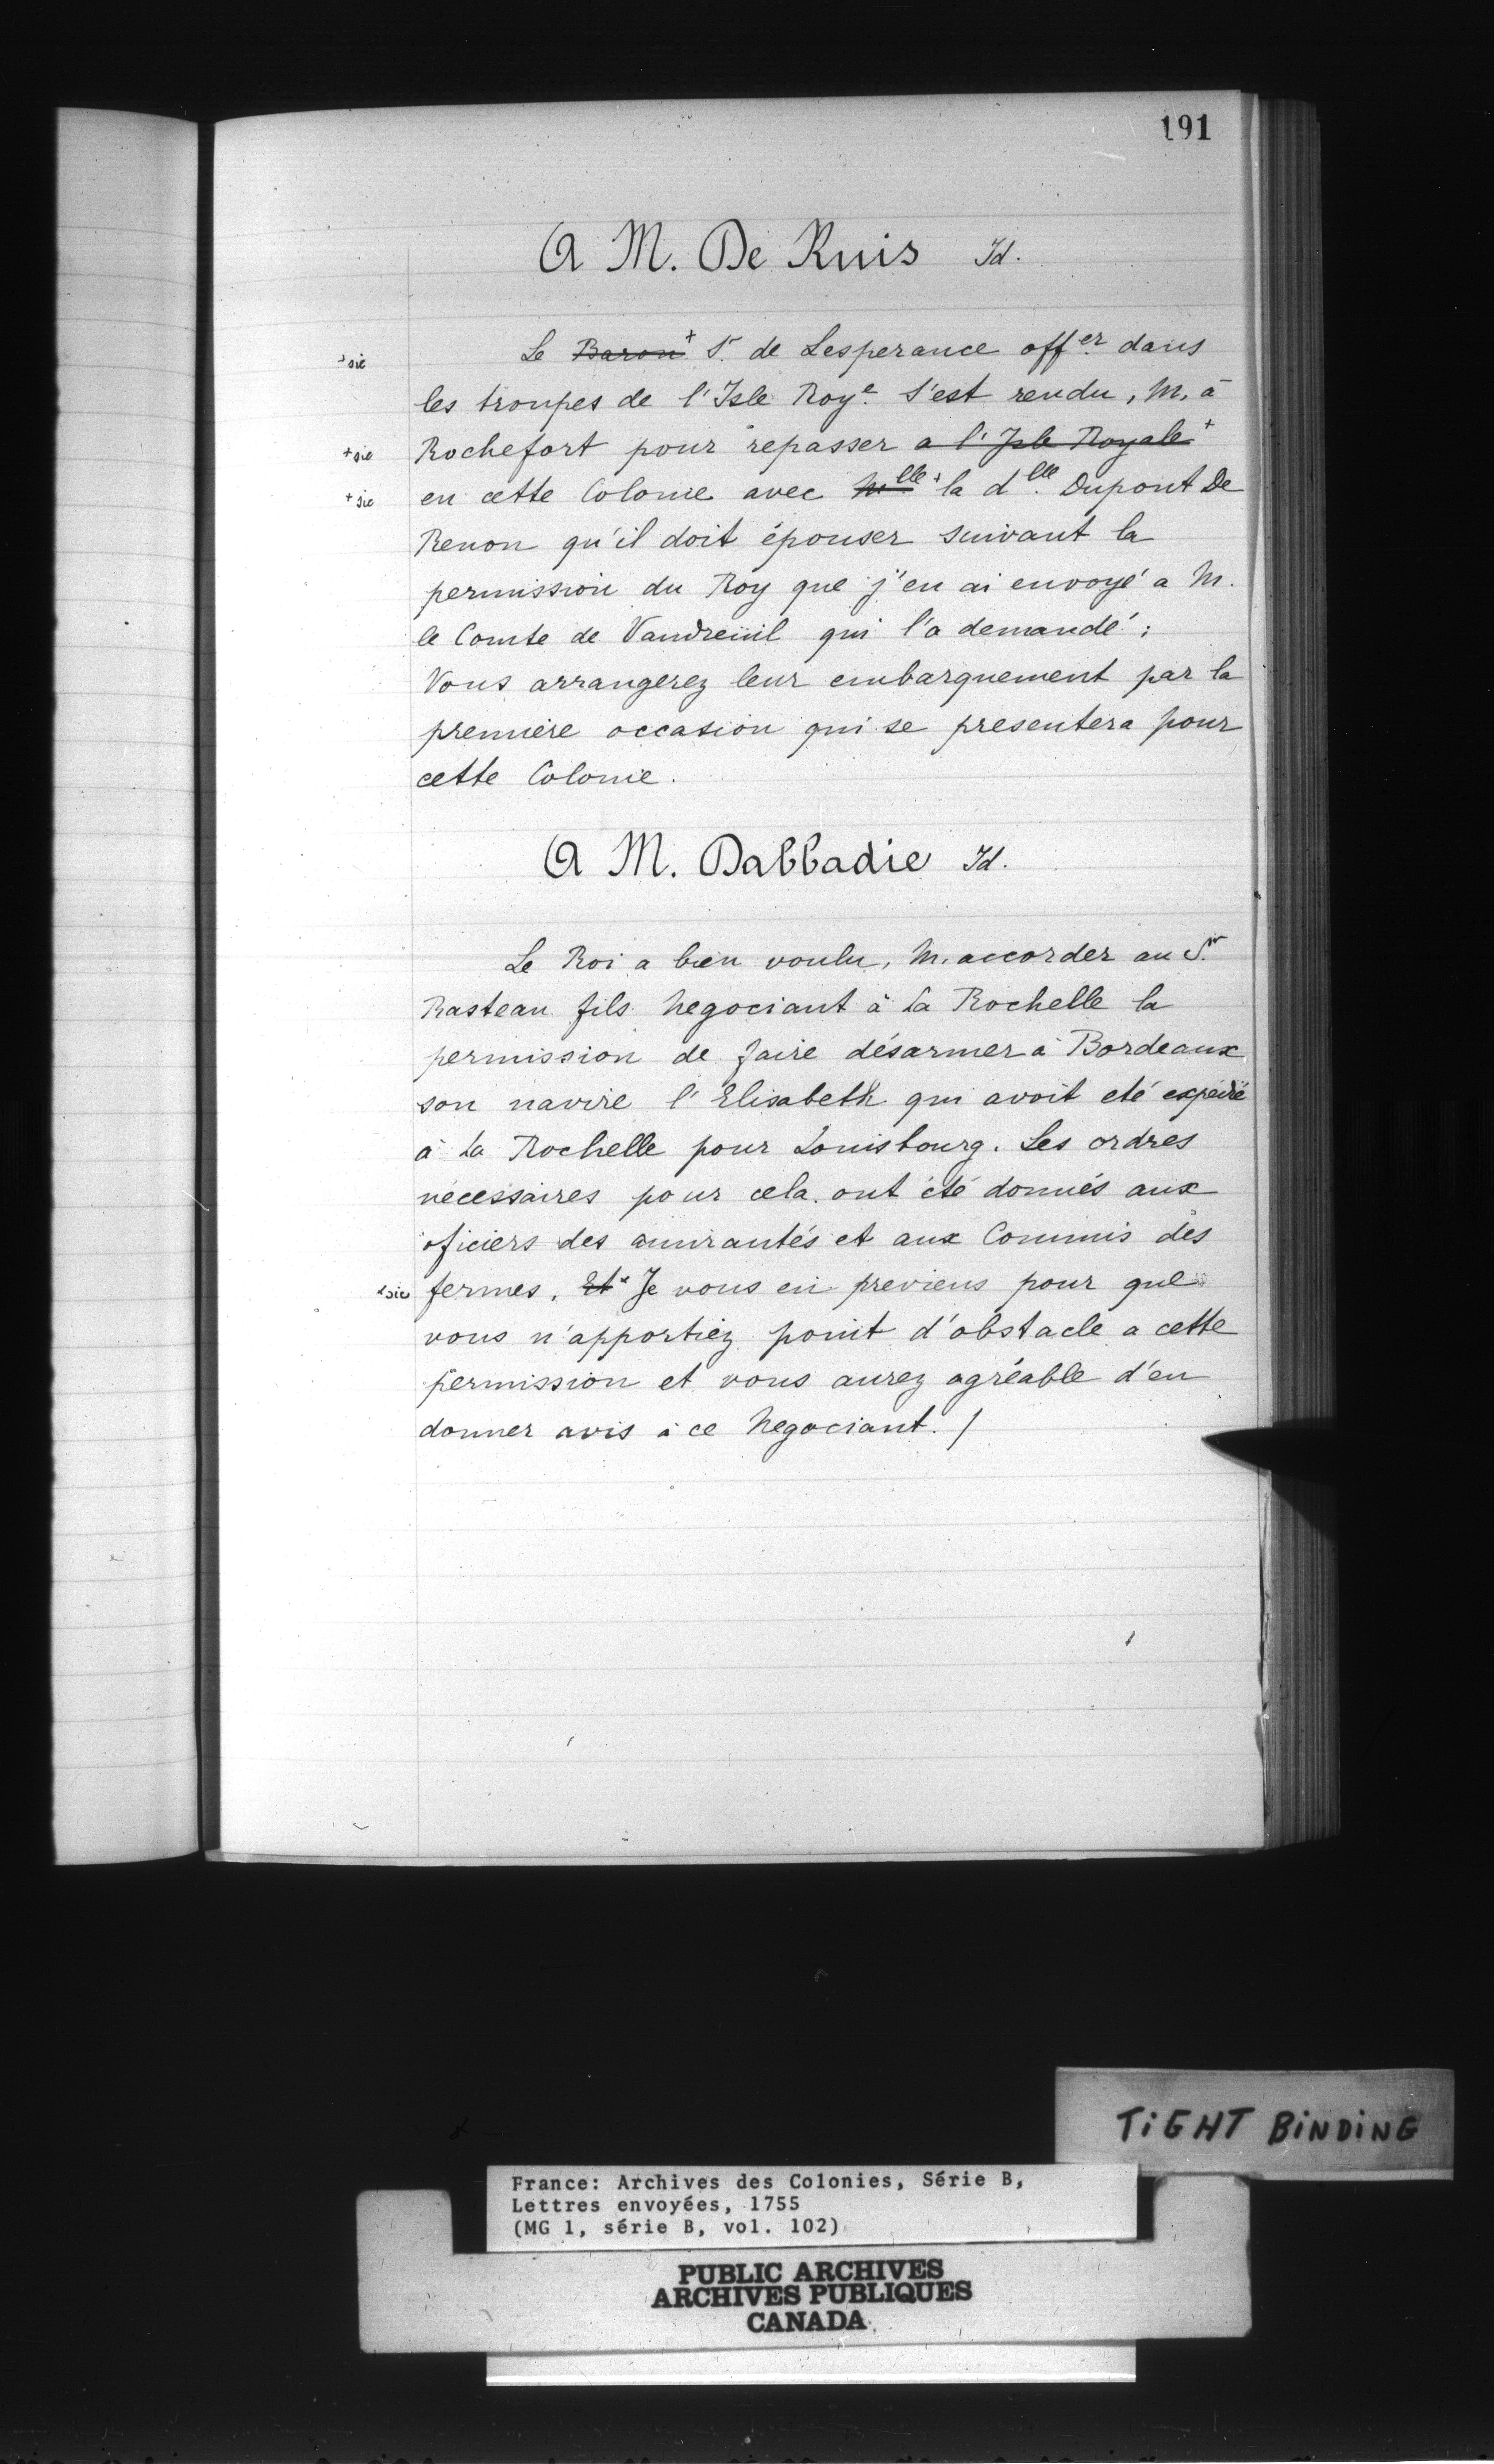 191
A M. De Ruis Id.
+sic Le ~~Baron~~+ Sr. de Lesperance offer. dans
les troupes de l'Isle Roye. s'est rendu, M. à
+sic Rochefort pour repasser ~~a l'Isle Royale~~+
+sic en cette Colonie avec ~~Mlle~~+ la dlle. Dupont De
Renon qu'il doit épouser suivant la
permission du Roy que j'en ai envoyé a M.
le Comte de Vaudreüil qui l'a demandé;
Vous arrangerez leur embarquement par la
premiere occasion qui se presentera pour
cette Colonie.
A M. Dabbadie Id.
Le Roi a bien voulu, M. accorder au Sr.
Rasteau fils Negociant à la Rochelle la
permission de faire désarmer à Bordeaux
son navire l'Elisabeth qui avoit eté expedié
à la Rochelle pour Louisbourg. Les ordres
nécessaires pour cela ont été donnés aux
oficiers des amirautés et aux Commis des
+sic fermes. ~~Et~~+ Je vous en previens pour que
vous n'apportiez point d'obstacle a cette
permission et vous aurez agréable d'en
donner avis à ce Negociant. /
TIGHT BINDING
France: Archives des Colonies, Série B,
Lettres envoyées, 1755
(MG 1, série B, vol. 102)
PUBLIC ARCHIVES
ARCHIVES PUBLIQUES
CANADA